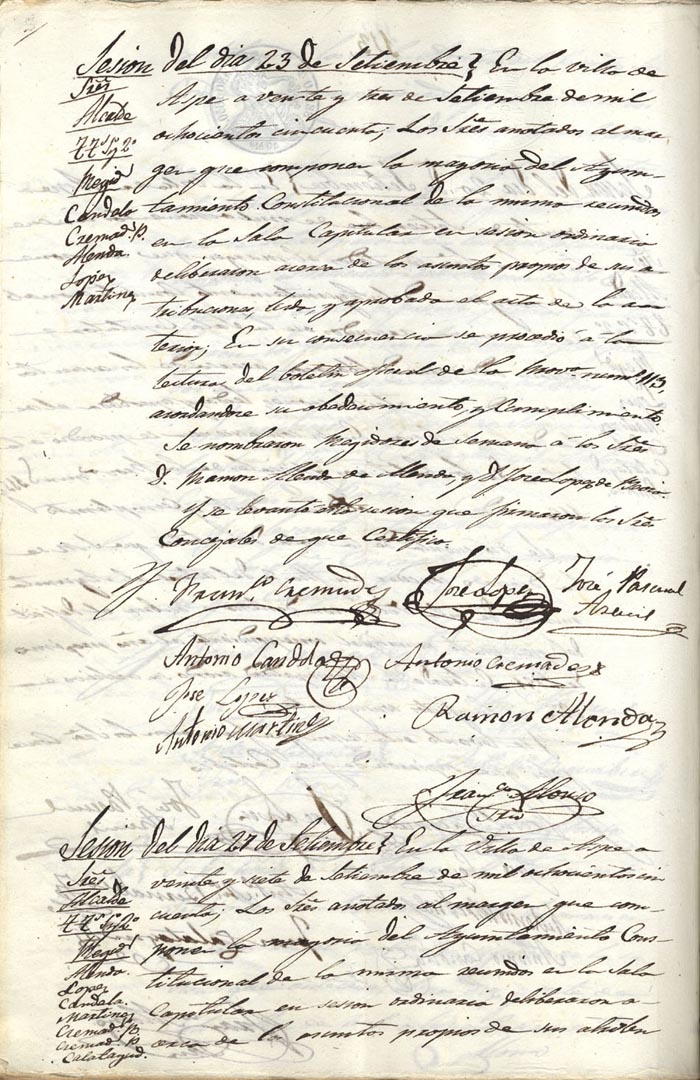 Sesion del dia 23 de Setiembre} En la Villa de
Sres
Alcalde
TTes 1º y 2º
Regid.s
Candela
Cremad.s P.
Alenda
Lopez
Martinez
Aspe a veinte y tres de Setiembre de mil
ochocientos cincuenta; Los Sres anotados al mar-
gen que componen la mayoria del Ayun-
tamiento Constitucional de la misma reunidos
en la Sala Capitular en sesion ordinaria
deliberaron acerca de los asuntos propios de sus a-
tribuciones, leida y aprobada el acta de la an-
terior; En su consecuencia se procedió á la
lectura del boletin oficial de la Prov.a num.o 113,
acordandose su obedecimiento, y Cumplimiento.
Se nombraron Regidores de Semana á los Sres
D. Ramon Alenda de Alenda, y D. Jose Lopez de
Y se levantó la sesion que firmaron los Sres
Concejales de que Certifico.
Fran.co Cremades
Jose Lopez
José Pascual
Antonio Candela
Antonio Cremades
Jose Lopez
Antonio Martinez
Ramon Alenda
Fran.co Alonso
Srio
Sesion del dia 27 de Setiembre} En la Villa de Aspe a
Sres
Alcalde
TTes 1º y 2º
Regid.s
Alenda
Lopez
Candela
Martinez
Cremad.s B.
Cremad.s P.
Calatayud.
veinte y siete de Setiembre de mil ochocientos cin
cuenta; Los Sres anotados al margen que com-
ponen la mayoria del Ayuntamiento Cons-
titucional de la misma reunidos en la Sala
Capitular en sesion ordinaria deliberaron a-
cerca de los asuntos propios de sus atribu